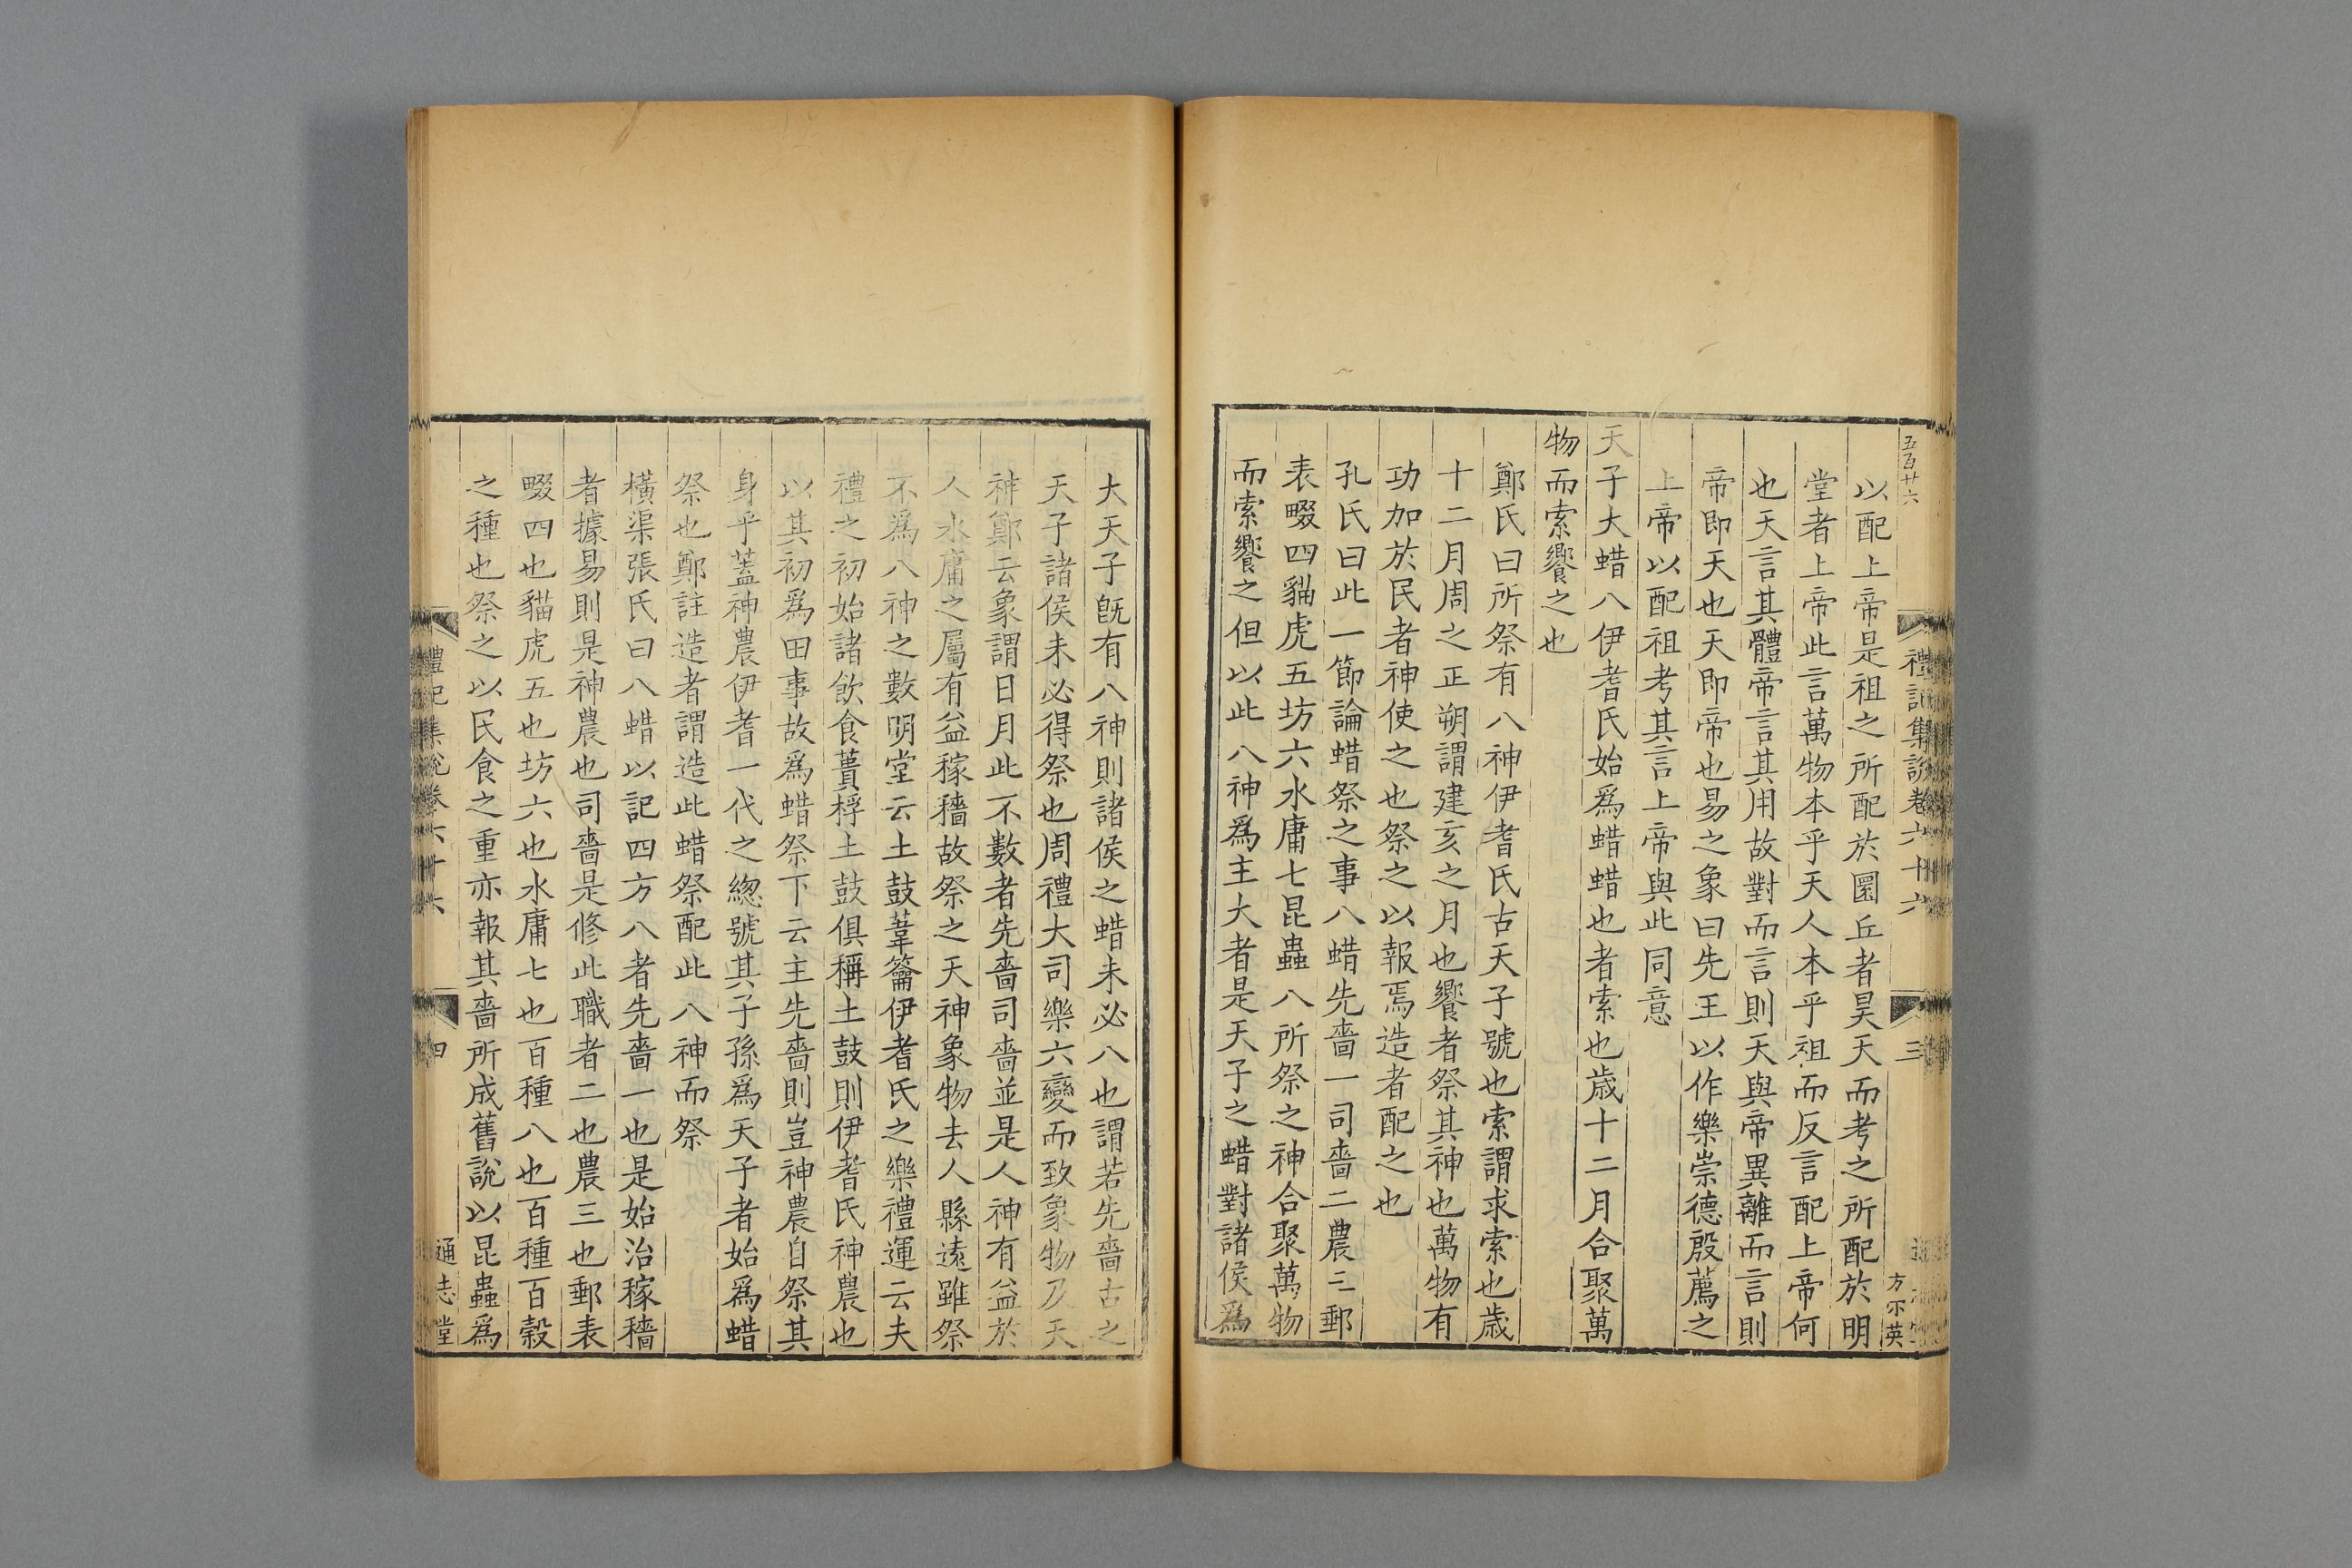 五百廿六
禮記集說卷六十六
三
方不英
以配上帝是祖之所配於圜丘者昊天而考之所配於明
堂者上帝此言萬物本乎天人本乎祖而反言配上帝何
也天言其體帝言其用故對而言則天與帝異離而言則
帝即天也天即帝也易之象曰先王以作樂崇德殷薦之
上帝以配祖考其言上帝與此同意
天子大蜡八伊耆氏始爲蜡蜡也者索也歲十二月合聚萬
物而索饗之也
鄭氏曰所祭有八神伊耆氏古天子號也索謂求索也歲
十二月周之正朔謂建亥之月也饗者祭其神也萬物有
功加於民者神使之也祭之以報焉造者配之也
孔氏曰此一節論蜡祭之事八蜡先嗇一司嗇二農三郵
表畷四貓虎五坊六水庸七昆蟲八所祭之神合聚萬物
而索饗之但以此八神爲主大者是天子之蜡對諸侯爲
大天子旣有八神則諸侯之蜡未必八也謂若先嗇古之
天子諸侯未必得祭也周禮大司樂六變而致象物及天
神鄭云象謂日月此不數者先嗇司嗇並是人神有益於
人水庸之屬有益稼穡故祭之天神象物去人縣遠雖祭
不爲八神之數明堂云土鼓葦籥伊耆氏之樂禮運云夫
禮之初始諸飲食蕢桴土鼓俱稱土鼓則伊耆氏神農也
以其初爲田事故爲蜡祭下云主先嗇則豈神農自祭其
身乎蓋神農伊耆一代之緫號其子孫爲天子者始爲蜡
祭也鄭註造者謂造此蜡祭配此八神而祭
橫渠張氏曰八蜡以記四方八者先嗇一也是始治稼穡
者據易則是神農也司嗇是修此職者二也農三也郵表
畷四也貓虎五也坊六也水庸七也百種八也百種百穀
之種也祭之以民食之重亦報其嗇所成舊說以昆蟲爲
禮記集說卷六十六
四
通志堂